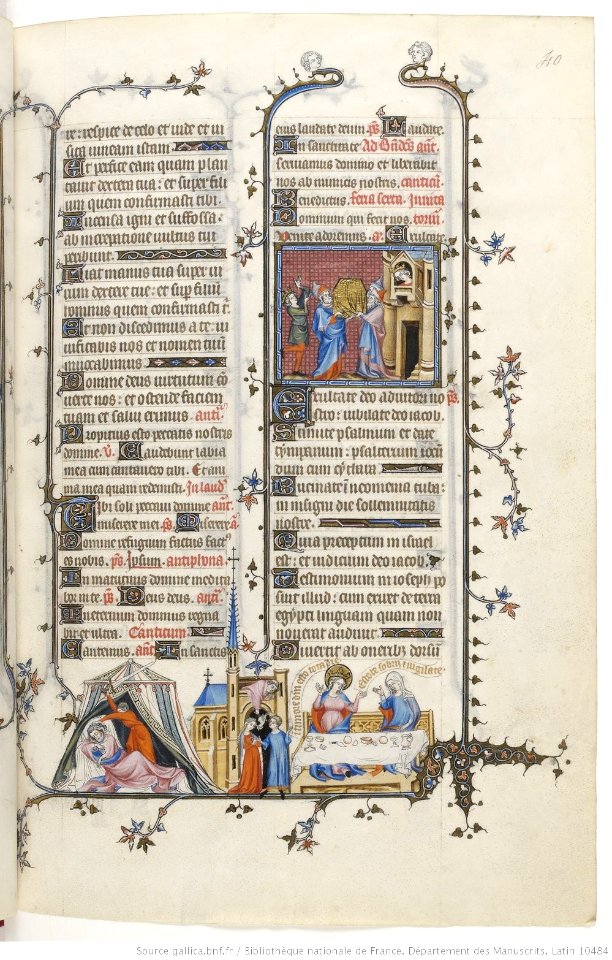 re: respice de celo et vide et vi
sita vineam istam.
Et perfice eam quam plan
tavit dextera tua: et super fili
um quem confirmasti tibi.
Incensa igni et suffossa:
ab increpatione vultus tui
peribunt.
Fiat manus tua super vi
rum dextere tue: et sup filium
hominis quem confirmasti t
Et non discedimus a te: vi
vificabis nos et nomen tuū
invocabimus.
Domine deus virtutum cō
verte nos: et ostende faciem
tuam et salvi erimus. ant
Propitius esto peccatis nostris
domine. v. Gaudebunt labia
mea cum cantavero tibi. Et ani
ma mea quam redemisti. In laud
Tibi soli peccavi domine ant
miserere mei. ps Miserere a
Domine refugium factus
es nobis. ps Ipsum. antiphona
In matutinis domine medita
bor in te. ps Deus deus. ant
In eternum dominus regna
bit et ultra. Canticum
Cantemus. ant In sanctis
eius laudate deum. ps Laudate.
In sanctitate Ad Bn̄dc̄s ant
serviamus domino et liberabit
nos ab inimicis nostris. canticū
Benedictus. feria sexta. Invita
Dominum qui fecit nos. toniū
Venite adoremus. a Exultate
Exultate deo adiutori no ps
stro: iubilate deo iacob.
Sumite psalmum et date
tympanum: psalterium iocū
dum cum cythara
Buccinate in neomenia tuba:
in insigni die sollemnitatis
nostre.
Quia preceptum in israel
est: et iudicium deo iacob.
Testimonium in ioseph po
suit illud: cum exiret de terra
egypti linguam quam non
noverat audivit.
Divertit ab oneribus dorsū
timore dn̄i esto tota die
estote sobrii et vigilate
40
Source gallica.bnf.fr / Bibliothèque nationale de France. Département des Manuscrits. Latin 10484